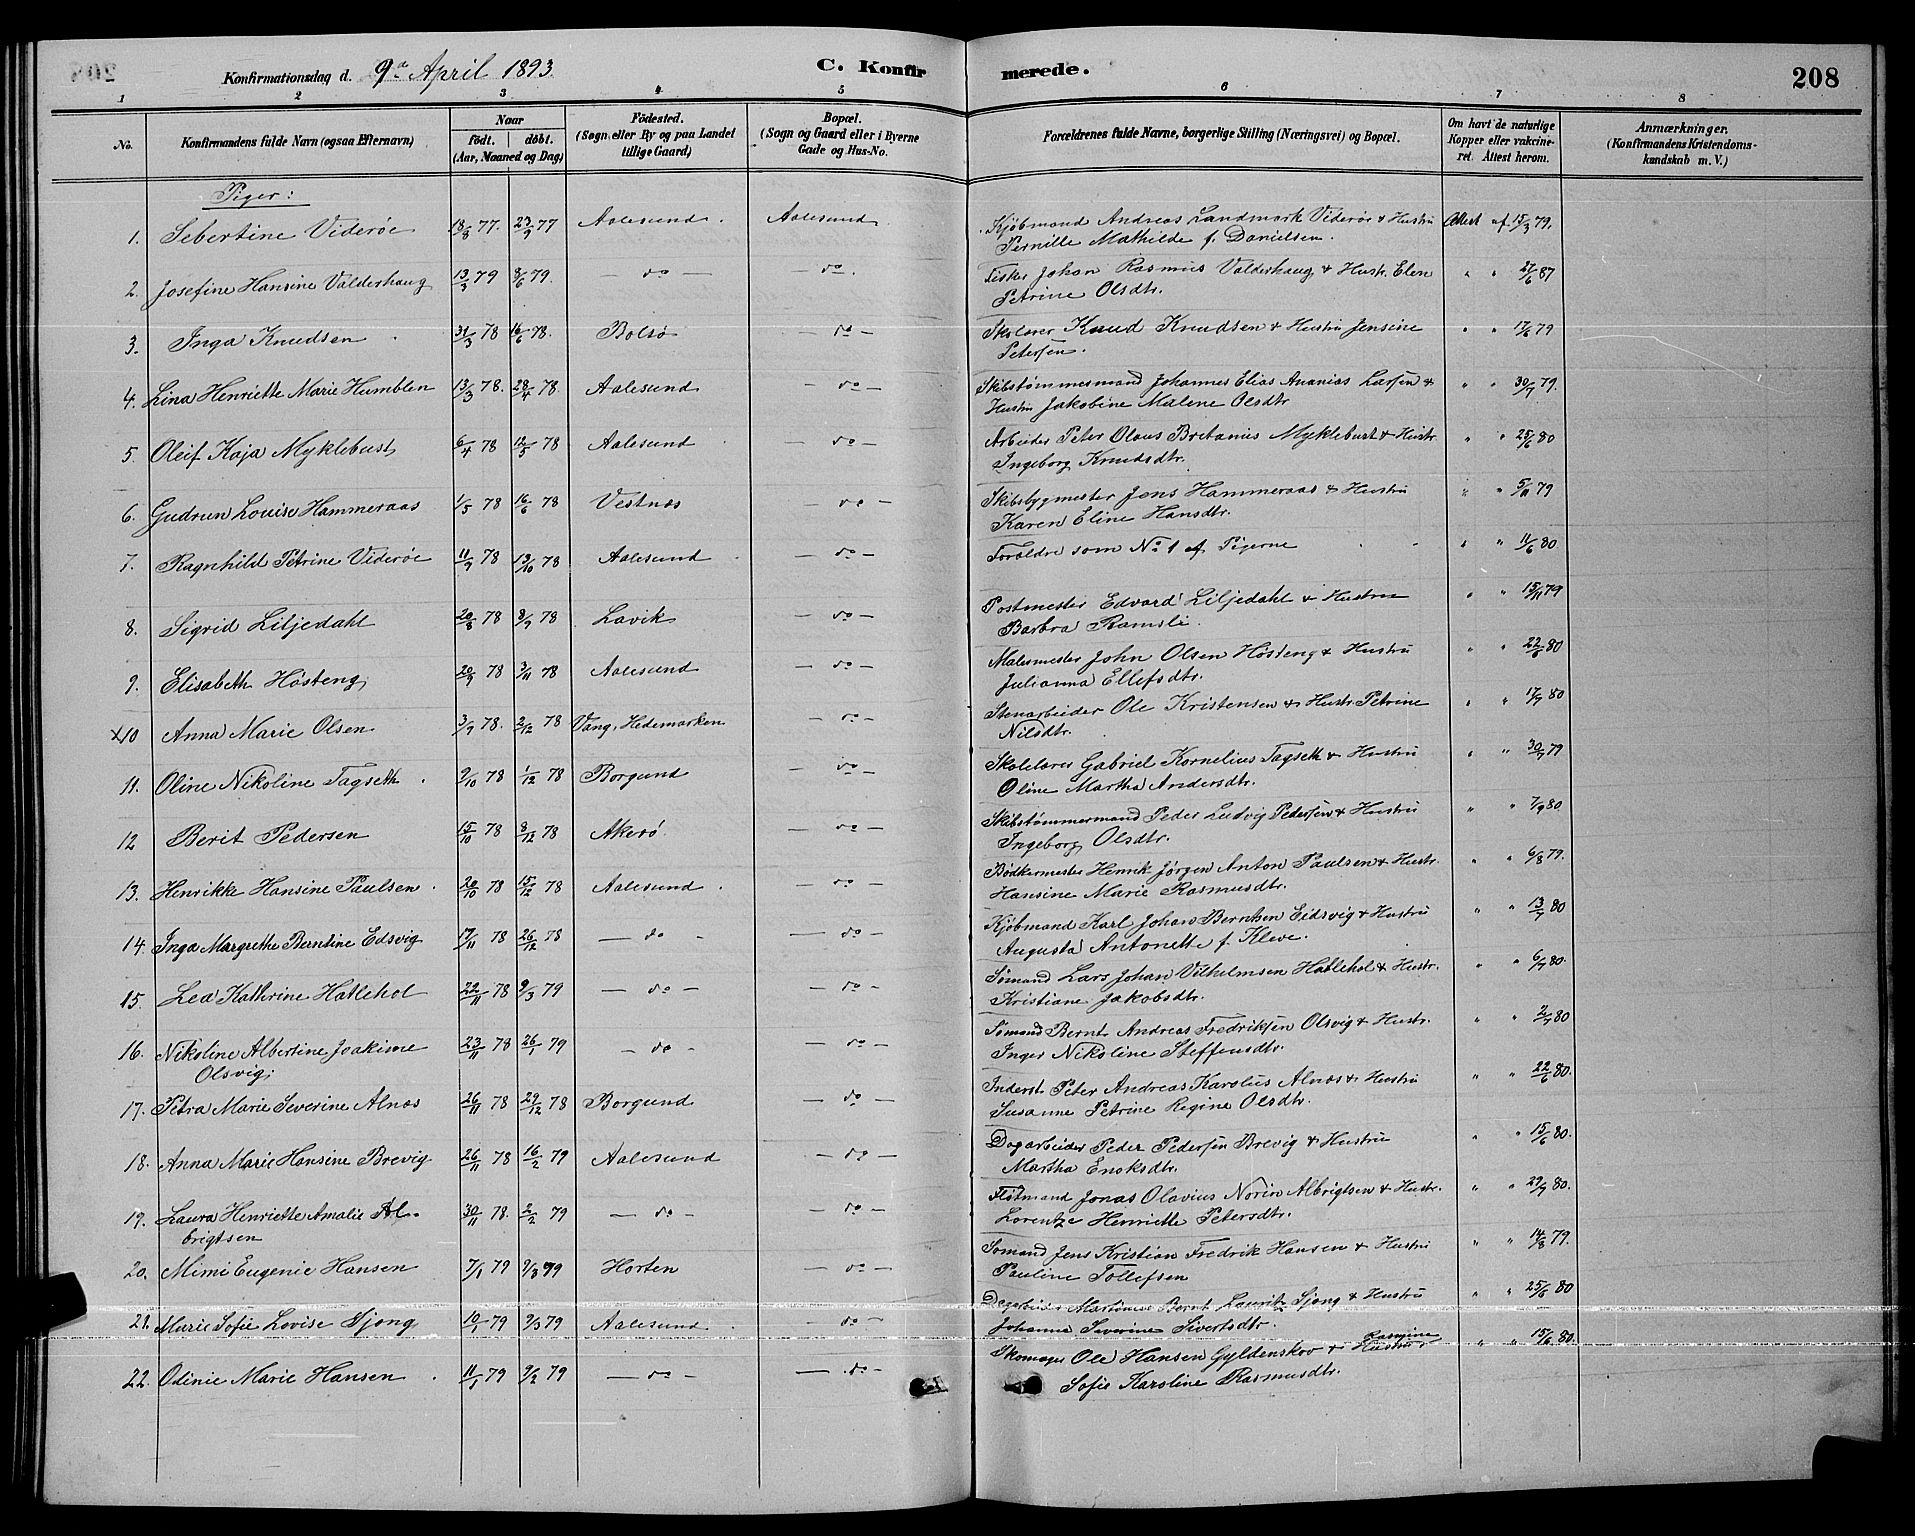 Konfirmationsdag d. 9de April 1893. C. Konfirmerede. 208
1 2 3 4 5 6 7 8
No. Konfirmandens fulde Navn (ogsaa Efternavn) Naar født. døbt. (Aar, Maaned og Dag) Fødested. (Sogn eller By og paa Landet tillige Gaard) Bopæl. (Sogn og Gaard eller i Byerne Gade og Hus-No. Forældrenes fulde Navne, borgerlige Stilling (Næringsvei) og Bopæl. Om havt de naturlige Kopper eller vakcineret. Attest herom. Anmærkninger. (Konfirmandens Kristendomskundskab m. V.)
Piger:
1. Sebertine Viderøe 18/8 77. 23/9 77 Aalesund. Aalesund Kjøbmand Andreas Landmark Viderøe & Hustru Attest af 15/3 79.
Pernille Mathilde f. Danielsen.
2. Josefine Hansine Valderhaug 13/3 79 8/6 79. — do — — do. Fisker Johan Rasmus Valderhaug & Hustr. Elen " " 27/6 87
Petrine Olsdtr.
3. Inga Knudsen 31/3 78 16/6 78. Bolsø — do — Skolærer Knud Knudsen & Hustru Jensine " " 17/6 79
Petersen.
4. Lina Henriette Marie Humblen 13/3 78. 28/4 78 Aalesund — do — Skibstømmermand Johannes Elias Ananias Larsen & " " 30/7 79.
Hustru Jakobine Malene Olsdtr
5. Oleif Kaja Myklebust 6/4 78 12/5 78 Aalesund — do — Arbeider Peter Olaus Britanius Myklebust & Hustr. " " 25/6 80
Ingeborg Knudsdtr.
6. Gudrun Louise Hammeraas 1/5 78 16/6 78 Vestnæs — do — Skibsbygmester Jens Hammeraas & Hustru " " 5/11 79
Karen Eline Hansdtr.
7. Ragnhild Petrine Viderøe 11/9 78 13/10 78 Aalesund — do — Forældre som No 1 af Pigerne " " 11/6 80
8. Sigrid Liljedahl 20/8 78 8/9 78 Lavik — do — Postmester Edvard Liljedahl & Hustru " " 15/11 79
Barbra Ramsli.
9. Elisabeth Høsteng 20/9 78 3/11 78 Aalesund — do — Malermester John Olsen Høsteng & Hustru " " 22/6 80
Julianna Ellefsdtr.
x10 Anna Marie Olsen 3/9 78. 2/12 78 Vang, Hedemarken — do — Stenarbeider Ole Kristensen & Hustr. Petrine " " 17/9 80
Nilsdtr.
11. Oline Nikoline Tagseth 9/10 78 1/12 78 Borgund — do — Skolelærer Gabriel Kornelius Tagseth & Hustru " " 30/7 79
Oline Martha Andersdtr.
12 Berit Pedersen 15/10 78 8/12 78 Akerø. — do — Skibstømmermand Peder Ludvig Pedersen & Hustru " " 7/9 80
Ingeborg Olsdtr.
13. Henrikke Hansine Paulsen 20/10 78 15/12 78 Aalesund — do — Bødkermester Henrik Jørgen Anton Paulsen & Hustr. " " 6/8 79.
Hansine Marie Rasmusdtr.
14. Inga Margrethe Berntine Edsvig 17/11 78 26/12 78 — do — do — Kjøbmand Karl Johan Berntsen Eidsvig & Hustru " " 13/7 80
Augusta Antonette f. Kleve.
15. Lea Kathrine Hatlehol 22/11 78 9/3 79 — do — — do — Sømand Lars Johan Vilhelmsen Hatlehol & Hustr. " " 6/7 80.
Kristiane Jakobsdtr.
16. Nikoline Albertine Joakime 23/11 78 26/1 79 — do — — do — Sømand Bernt Andreas Fredriksen Olsvig & Hustr. " " 2/7 80
Olsvig. Inger Nikoline Steffensdtr.
17. Petra Marie Severine Alnæs 26/11 78 29/12 78 Borgund — do — Inderst. Peter Andreas Karolus Alnæs & Hustru " " 22/6 80.
Susanne Petrine Regine Olsdtr.
18. Anna Marie Hansine Brevig 26/11 78 16/2 79 Aalesund — do — Dagarbeider Peder Pedersen Brevig & Hustru " " 15/6 80.
Martha Enoksdtr.
19. Laura Henriette Amalie Al- 30/11 78. 2/2 79 — do — — do — Fløtmand Jonas Olavius Norin Albrigtsen & Hustr. " " 29/7 80.
brigtsen Lorentze Henriette Petersdtr.
20. Mimi Eugenie Hansen 7/1 79 9/3 79 Horten — do — Sømand Jens Kristian Fredrik Hansen & Hustru " " 14/8 79.
Pauline Tollefsen
21. Marie Sofie Lovise Gjong 10/1 79 9/3 79 Aalesund. — do — Dagarbeider Martinus Bernt Lauritz Gjong & Hustru " " 25/6 80
Johanne Severine Sivertsdtr.
22. Odinie Marie Hansen 11/1 79 9/2 79 — do — — do — Skomager Ole Hansen Gyldenskov & Hustru Rasmine " " 15/6 80.
Sofie Karoline Rasmusdtr.